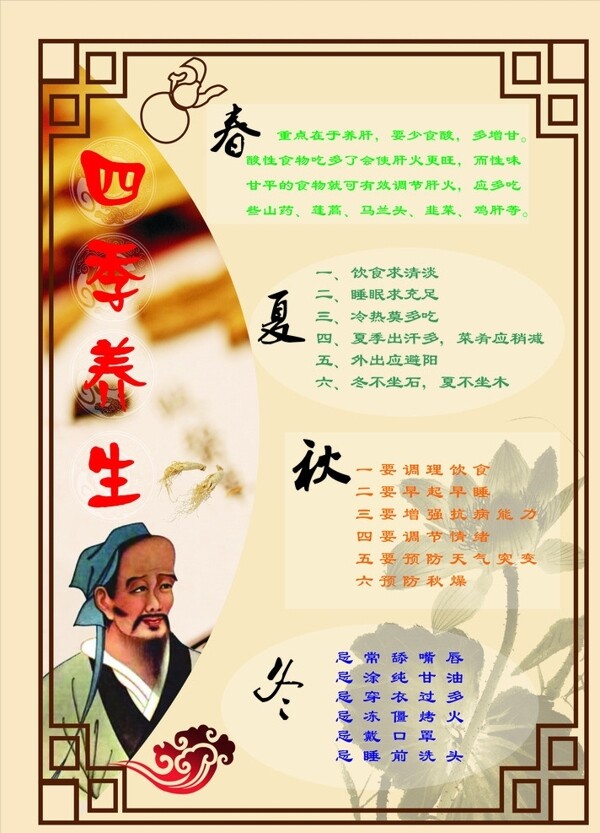 四季养生
春
重点在于养肝，要少食酸，多增甘。
酸性食物吃多了会使肝火更旺，而性味
甘平的食物就可有效调节肝火，应多吃
些山药、莲藕、马兰头、韭菜、鸡肝等。
夏
一、饮食求清淡
二、睡眠求充足
三、冷热莫多吃
四、夏季出汗多，菜肴应稍减
五、外出应避阳
六、冬不坐石，夏不坐木
秋
一要调理饮食
二要早起早睡
三要增强抗病能力
四要调节情绪
五要预防天气突变
六预防秋燥
冬
忌常舔嘴唇
忌涂纯甘油
忌穿衣过多
忌冻僵烤火
忌戴口罩
忌睡前洗头